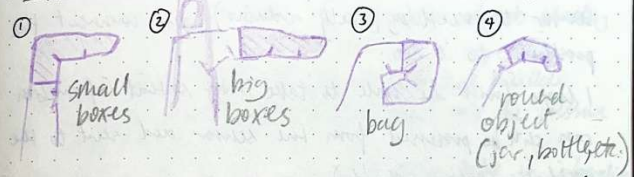 ① ② ③ ④
small
boxes
big
boxes
bag
round
object
(jar, bottle, etc.)